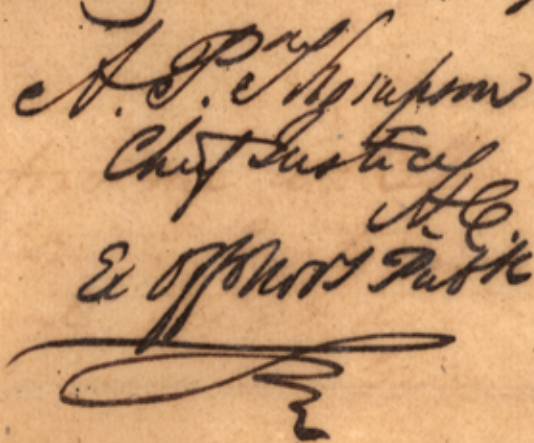 A. P. Thompson
Chief Justice
H. C.
Ex officio Not Pub